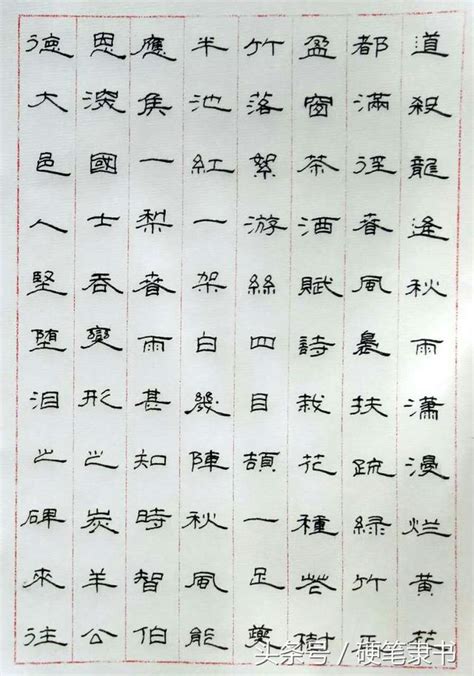 道殺龍逢秋雨瀟漫烂黄花
都滿径春風裊扶疏緑竹正
盈窗茶酒賦詩栽花種樹
竹落絮游絲四目頡一足夔
半池紅一架白幾陣秋風能
應侯一梨春雨甚知時智伯
恩深國士吞變形之炭羊公
德大邑人堅堕泪之碑來往
头条号 / 硬笔隶书